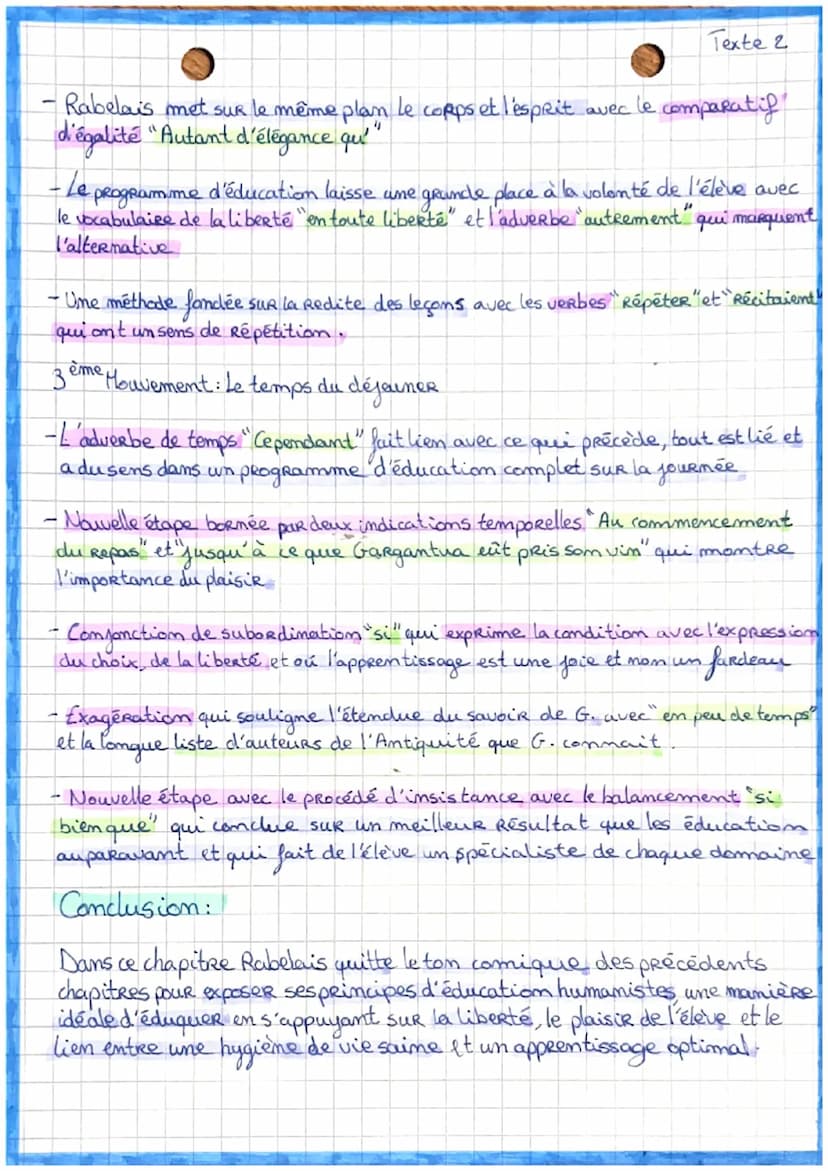 Texte 2
- Rabelais met sur le même plan le corps et l'esprit avec le comparatif
d'égalité "Autant d'élégance qu'"
- Le programme d'éducation laisse une grande place à la volonté de l'élève avec
le vocabulaire de la liberté "en toute liberté" et l'adverbe "autrement" qui marquent
l'alternative
- Une méthode fondée sur la redite des leçons avec les verbes "répéter" et "récitaient"
qui ont un sens de répétition.
3ème Mouvement : Le temps du déjeuner
- L'adverbe de temps "Cependant" fait lien avec ce qui précède, tout est lié et
a du sens dans un programme d'éducation complet sur la journée
- Nouvelle étape bornée par deux indications temporelles "Au commencement
du repas" et "jusqu'à ce que Gargantua eût pris son vin" qui montre
l'importance du plaisir
- Conjonction de subordination "si" qui exprime la condition avec l'expression
du choix, de la liberté et où l'apprentissage est une joie et non un fardeau
- Exagération qui souligne l'étendue du savoir de G. avec "en peu de temps"
et la longue liste d'auteurs de l'Antiquité que G. connait.
- Nouvelle étape avec le procédé d'insistance avec le balancement "si
bien que" qui conclue sur un meilleur résultat que les éducation
auparavant et qui fait de l'élève un spécialiste de chaque domaine
Conclusion :
Dans ce chapitre Rabelais quitte le ton comique des précédents
chapitres pour exposer ses principes d'éducation humanistes, une manière
idéale d'éduquer en s'appuyant sur la liberté, le plaisir de l'élève et le
lien entre une hygiène de vie saine et un apprentissage optimal.